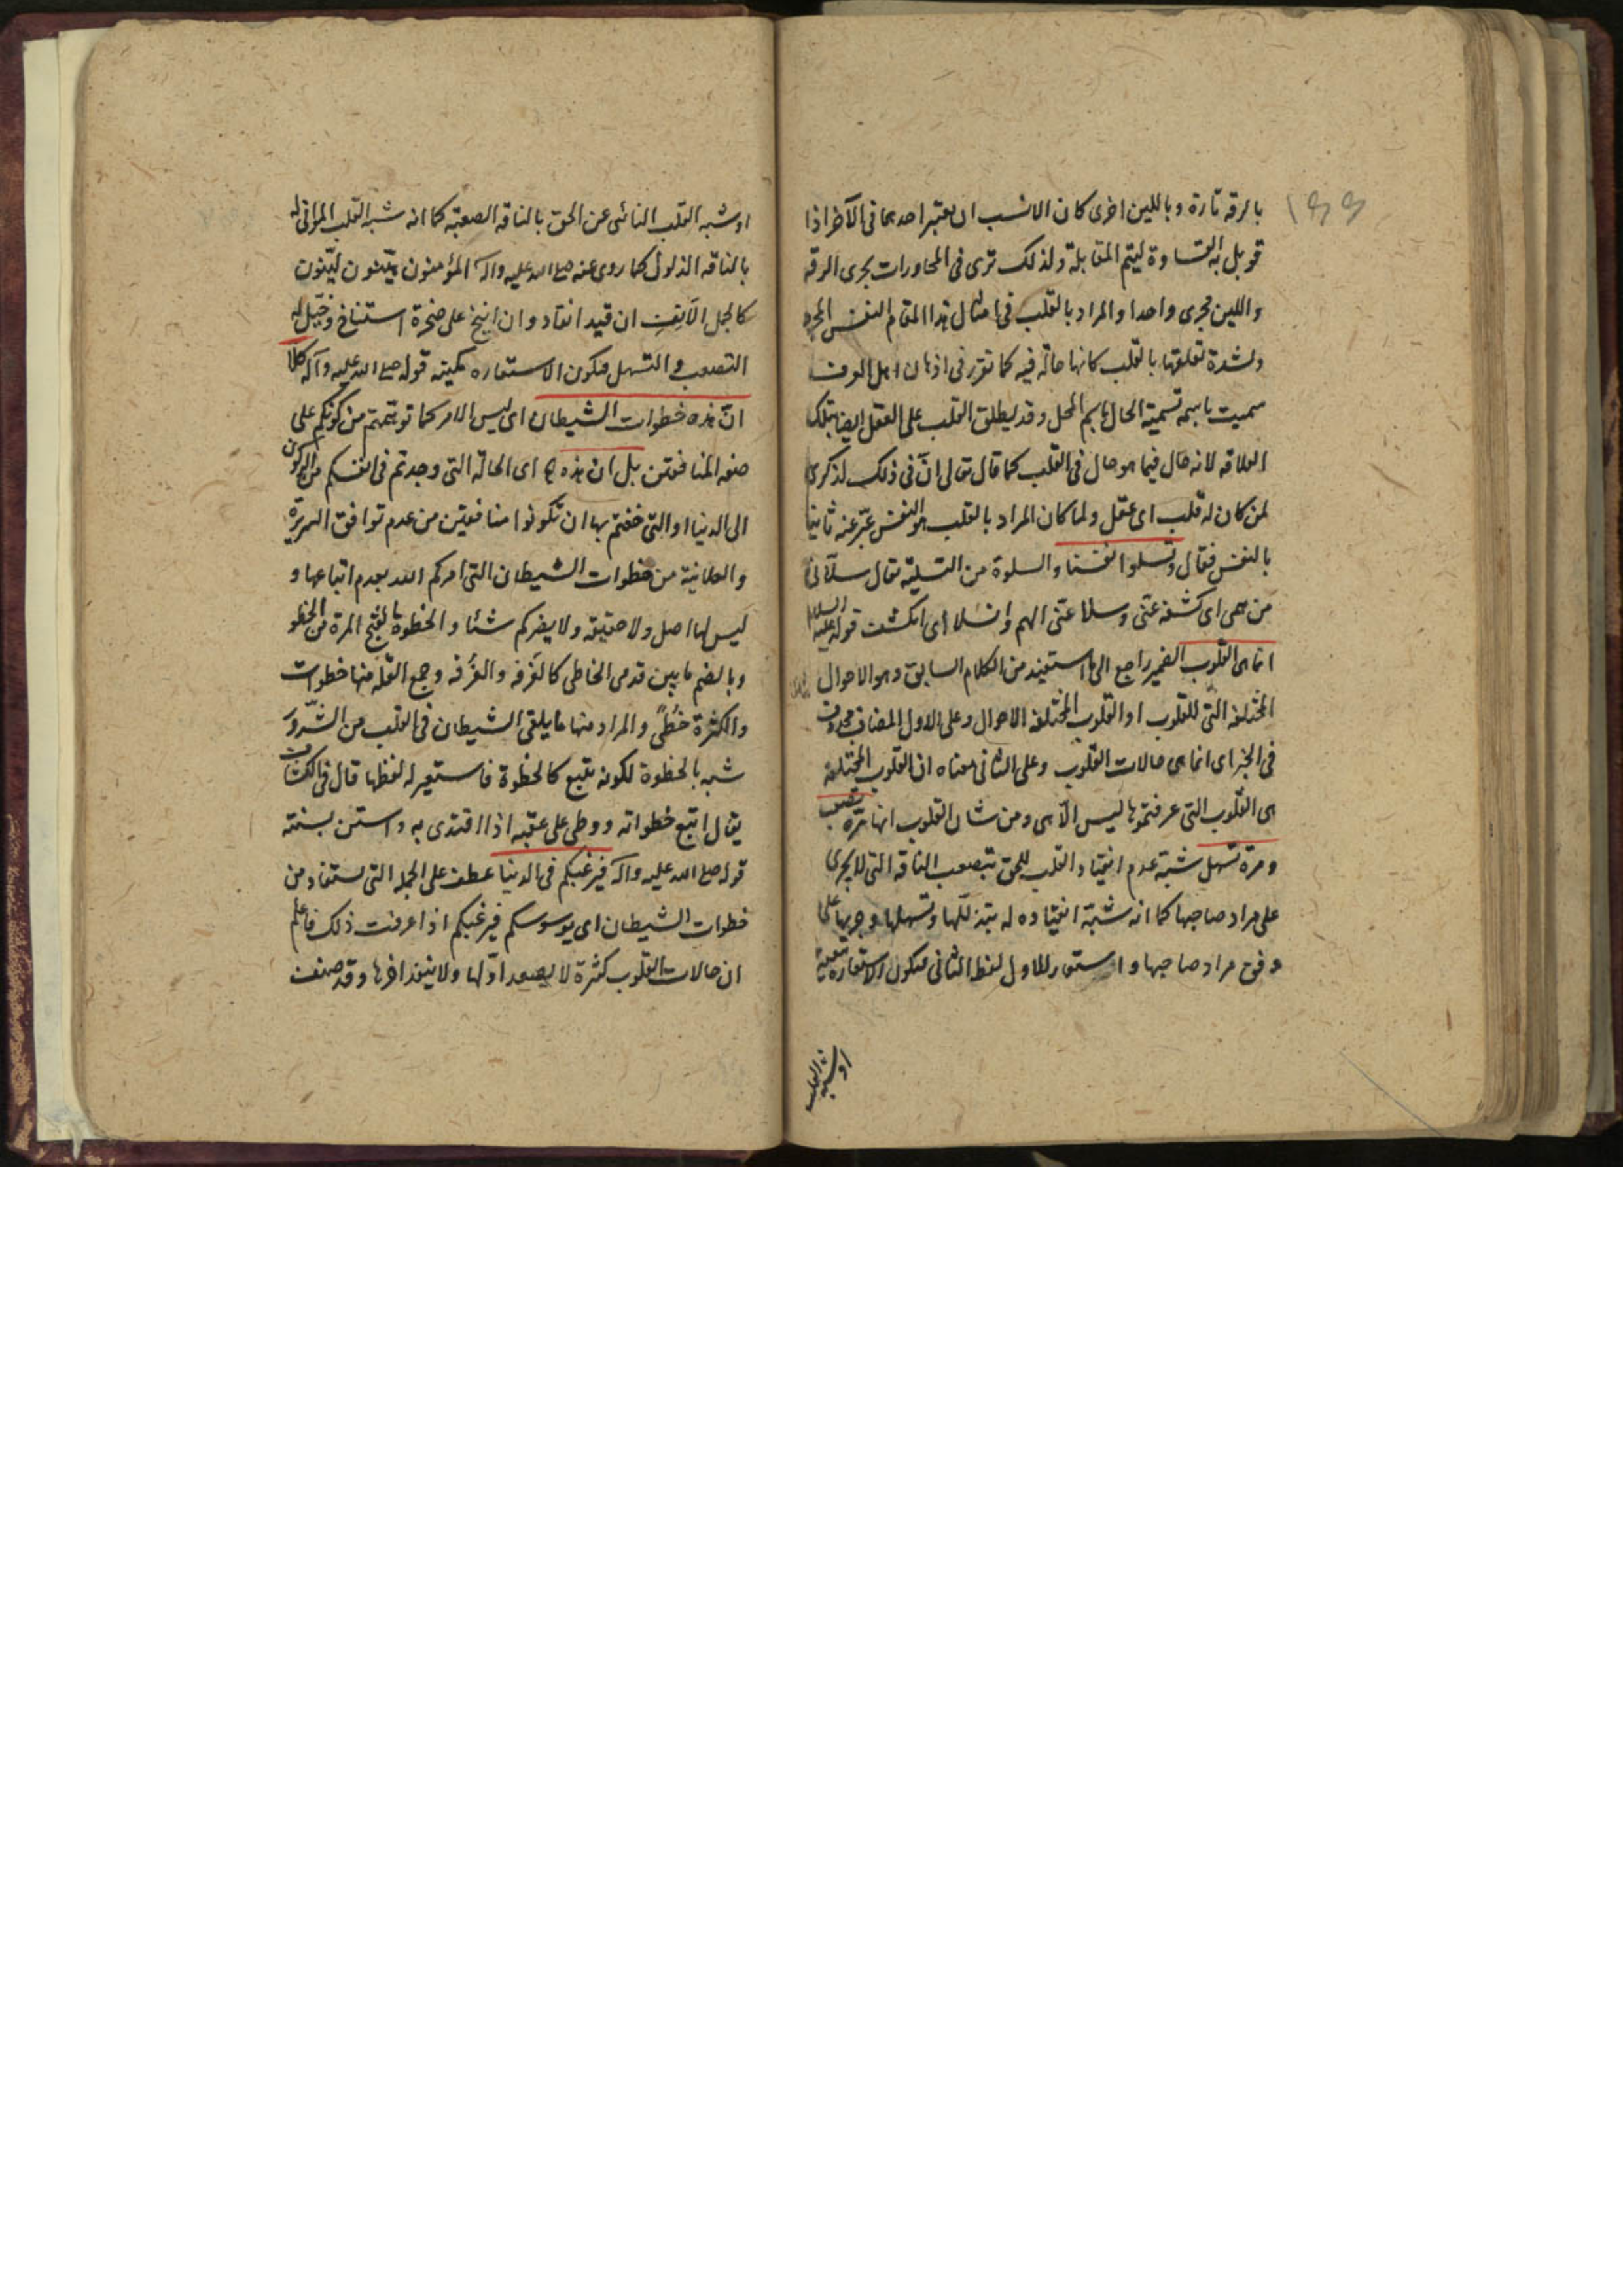 بالرقه تارة وباللين اخرى كان الانسب ان يعتبر احدهما فى الآخر اذا
قوبل به القساوة ليتم المقابلة ولذلك ترى فى المحاورات يجرى الرقه
واللين مجرى واحدا والمراد بالقلب فى امثال هذا المقام النفس المجرده
ولشدة تعلقها بالقلب كانها حالّه فيه كما تقرر فى اذهان اهل العرف
سميت باسمه تسمية الحال باسم المحل وقد يطلق القلب على العقل ايضا بتلك
العلاقه لانه حال فيما هو حال فى القلب كما قال تعالى انّ فى ذلك لذكرى
لمن كان له قلب اى عقل ولما كان المراد بالقلب هو النفس عبّر عنه ثانيا
بالنفس فقال وتسلو انفسنا والسلوة من التسليه يقال سلّانى
من همى اى كشفه عنّى وسلا عنّى الهم وانسلا اى انكشف قوله عليه السلام
انما هى القلوب الضمير راجع الى ما استفيد من الكلام السابق وهو الاحوال
المختلفه التى للقلوب او القلوب المختلفه الاحوال وعلى الاول المضاف محذوف
فى الخبر اى انما هى حالات القلوب وعلى الثانى معناه ان القلوب المختلفه
هى القلوب التى عرفتموها ليس الّا هى ومن شان القلوب انها مرّه تصعب
ومرة تسهل شبّه عدم انقياد القلب للحق بتصعب الناقه التى لا يجرى
على مراد صاحبها كما انه شبّه انقياده له بتذلّلها وتسهلها وجريها على
وفق مراد صاحبها واستعار للاول لفظ الثانى فيكون الاستعاره تبعية
او شبه القلب
او شبه القلب النائى عن الحق بالناقه الصعبة كما انه شبه القلب الموافق له
بالناقه الذلول كما روى عنه صلى الله عليه وآله المؤمنون هيّنون ليّنون
كالجمل الآنِفِ ان قيد انقاد وان انيخ على صخرة استناخ وخيّل له
التصعب والتسهل فيكون الاستعاره مكنيه قوله صلى الله عليه وآله كلا
انّ هذه خطوات الشيطان اى ليس الامر كما توهمتم من كونكم على
صفه المنافقين بل ان هذه اى الحالة التى وجدتم فى انفسكم من الركون
الى الدنيا او التى خفتم بها ان تكونوا منافقين من عدم توافق السريرة
والعلانية من خطوات الشيطان التى امركم الله بعدم اتباعها و
ليس لها اصل ولا حقيقه ولا يضركم شئا والخطوة بالفتح المرة من الخطو
وبالضم ما بين قدمى الخاطى كالغَرفه والغُرفه وجمع القله منها خطوات
والكثرة خُطًى والمراد منها ما يلقى الشيطان فى القلب من الشرور
شبه بالخطوة لكونه يتبع كالخطوة فاستعير له لفظها قال فى الكشاف
يقال اتبع خطواته ووطى على عقبه اذا اقتدى به واستن بسنته
قوله صلى الله عليه وآله فيرغبكم فى الدنيا عطف على الجمله التى يستفاد من
خطوات الشيطان اى يوسوسكم فيرغبكم اذا عرفت ذلك فاعلم
ان حالات القلوب كثرة لا يصعد اوّلها ولا ينفد اخرها وقد صنف